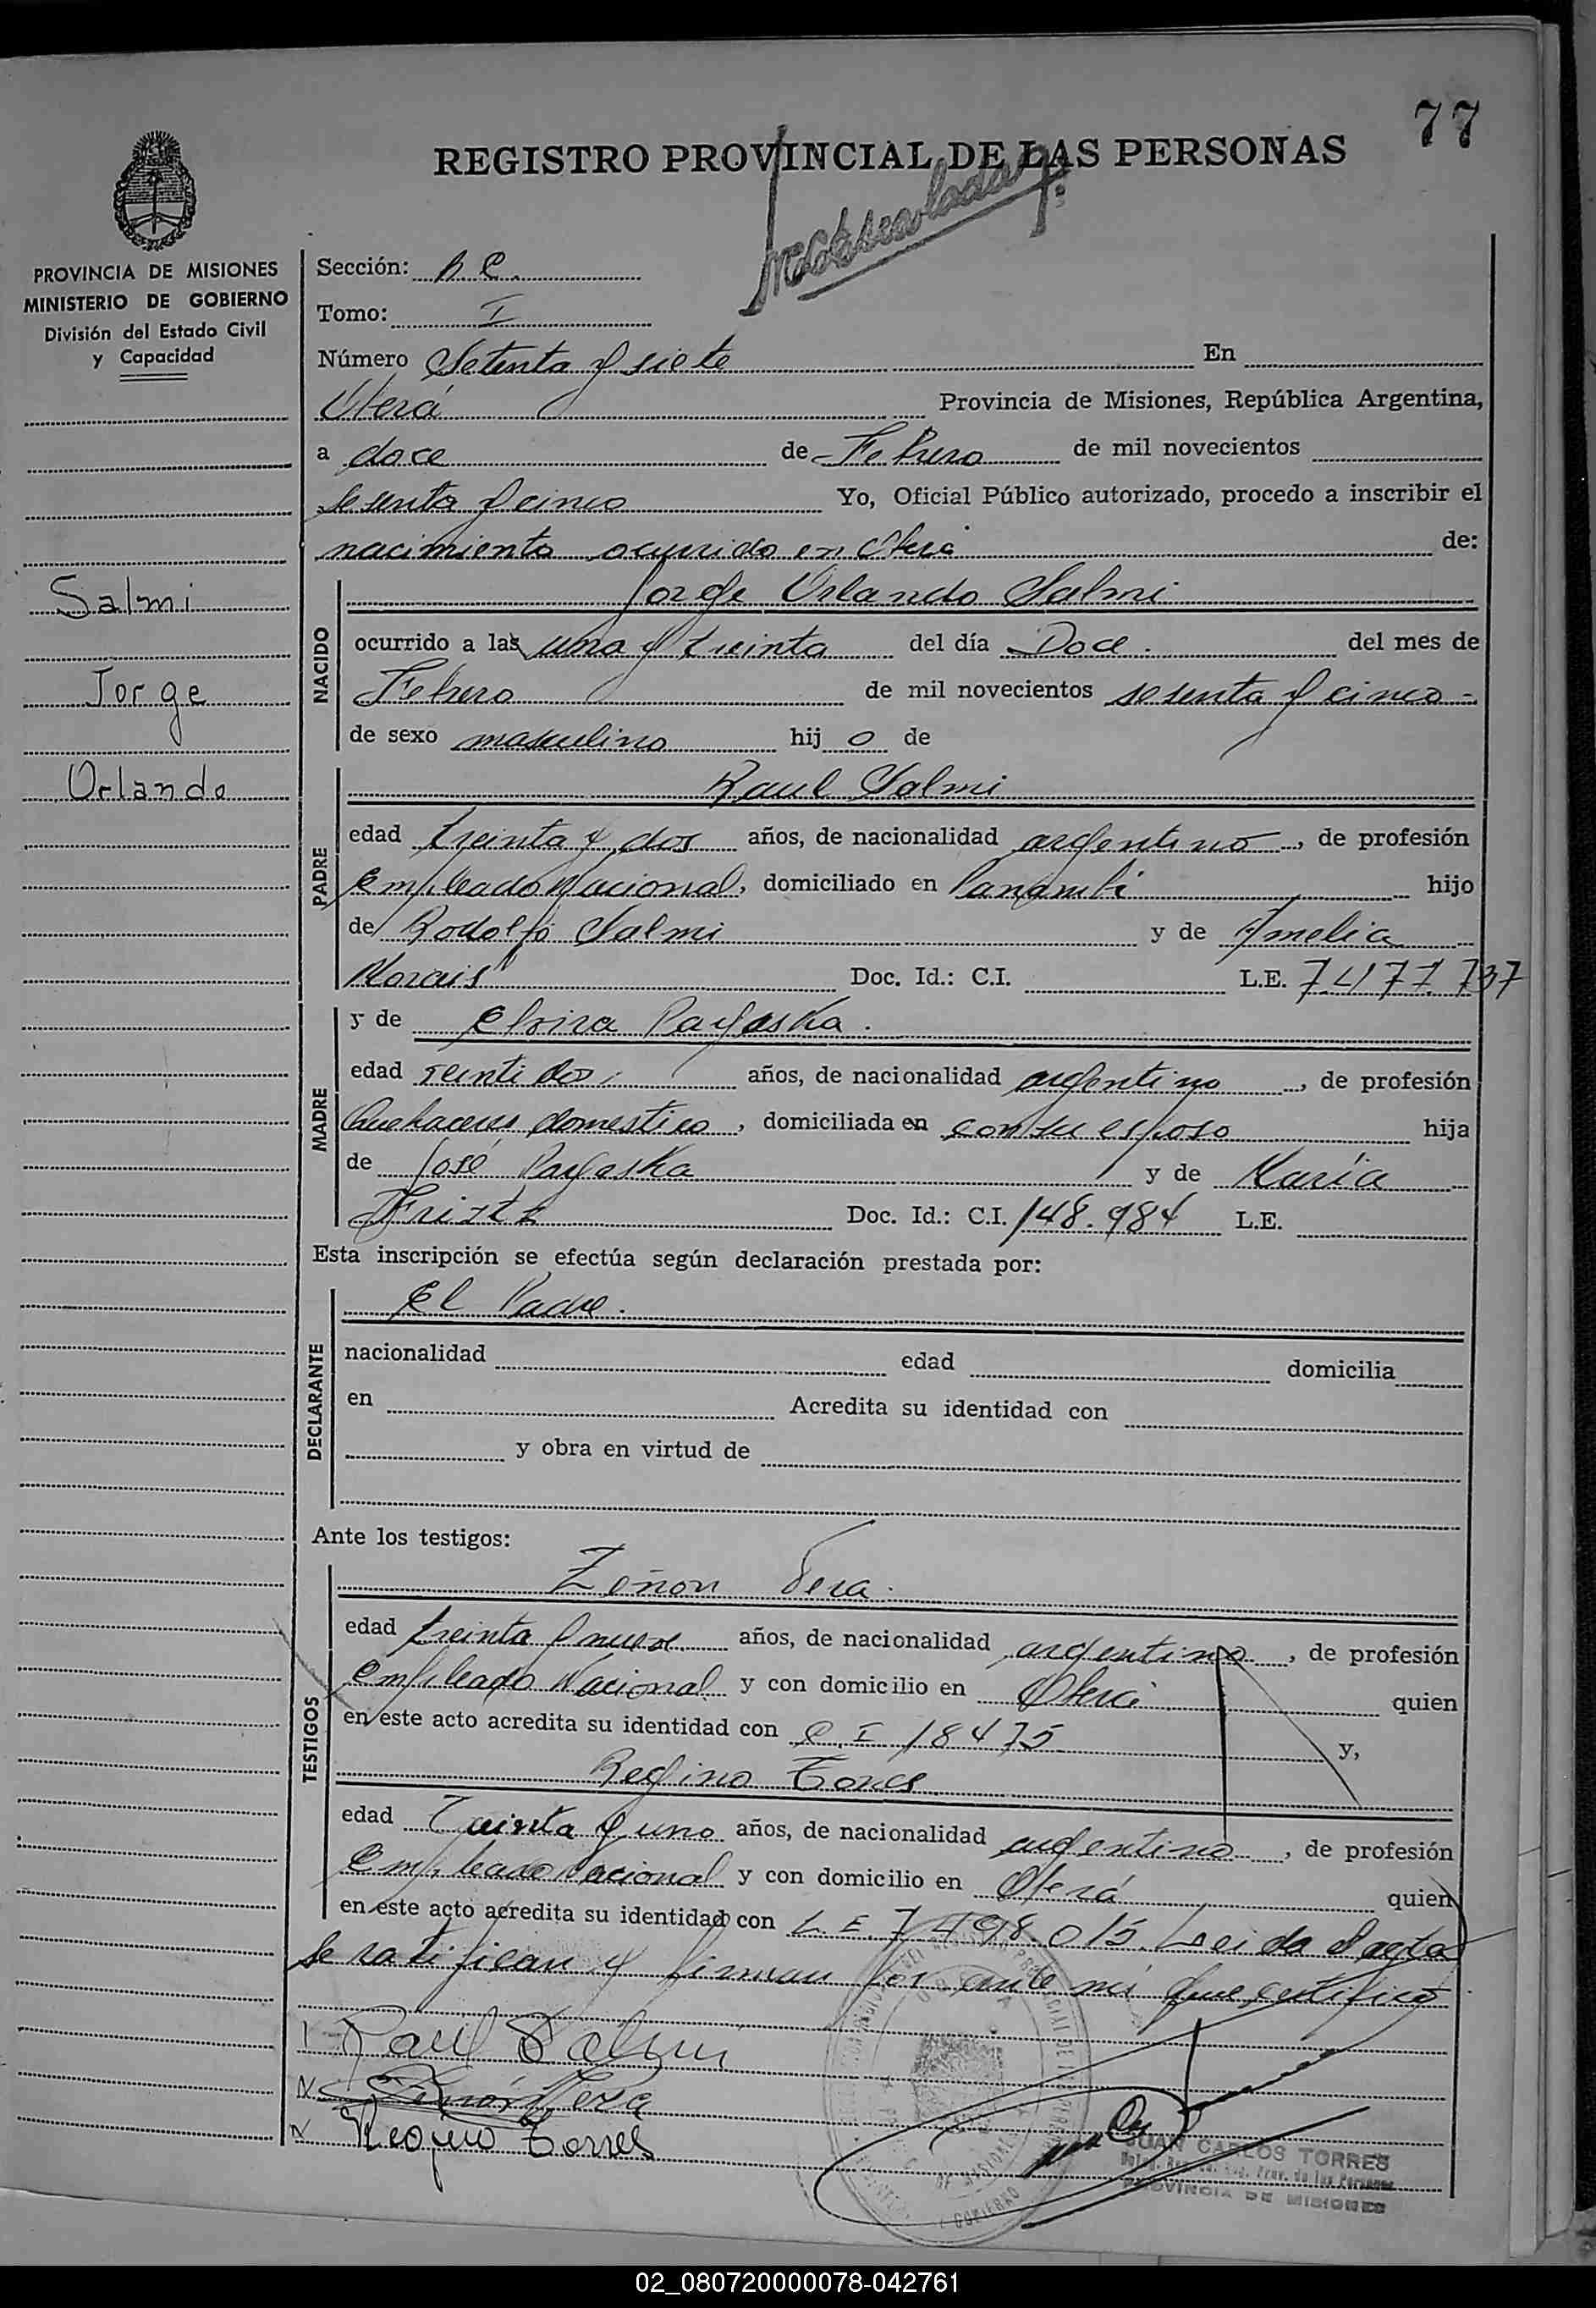 77
REGISTRO PROVINCIAL DE LAS PERSONAS
PROVINCIA DE MISIONES
MINISTERIO DE GOBIERNO
División del Estado Civil
y Capacidad
Salmi
Jorge
Orlando
Sección:
Tomo: I
Número Setenta y siete En
Oberá Provincia de Misiones, República Argentina,
a doce de Febrero de mil novecientos
sesenta y cinco Yo, Oficial Público autorizado, procedo a inscribir el
nacimiento ocurrido en Oberá de:
NACIDO
Jorge Orlando Salmi
ocurrido a las una y treinta del día Doce. del mes de
Febrero de mil novecientos sesenta y cinco-
de sexo masculino hij o de
PADRE
Raul Salmi
edad treinta y dos años, de nacionalidad argentino, de profesión
empleado Nacional, domiciliado en Panambi hijo
de Rodolfo Salmi y de Amelia
Morais Doc. Id.: C.I. L.E.
MADRE
y de Elvira Payaska.
edad veintidos años, de nacionalidad argentina, de profesión
Quehaceres domestico, domiciliada en con su esposo hija
de José Payaska y de María
Doc. Id.: C.I. 148.984 L.E.
Esta inscripción se efectúa según declaración prestada por:
DECLARANTE
El Padre.
nacionalidad edad domicilia
en Acredita su identidad con
y obra en virtud de
Ante los testigos:
TESTIGOS
Zeñon Vera.
edad treinta y nueve años, de nacionalidad argentino, de profesión
empleado Nacional y con domicilio en Oberá quien
en este acto acredita su identidad con C. I 18475 y,
Regino Torres
edad Treinta y uno años, de nacionalidad argentino, de profesión
Empleado Nacional y con domicilio en Oberá quien
en este acto acredita su identidad con L E 7.498.015. Leida el acta
se ratifican y firman por ante mi que certifico
Raul Salmi
Zenón Vera
Regino Torres
JUAN CARLOS TORRES
PROVINCIA DE MISIONES
02_080720000078-042761